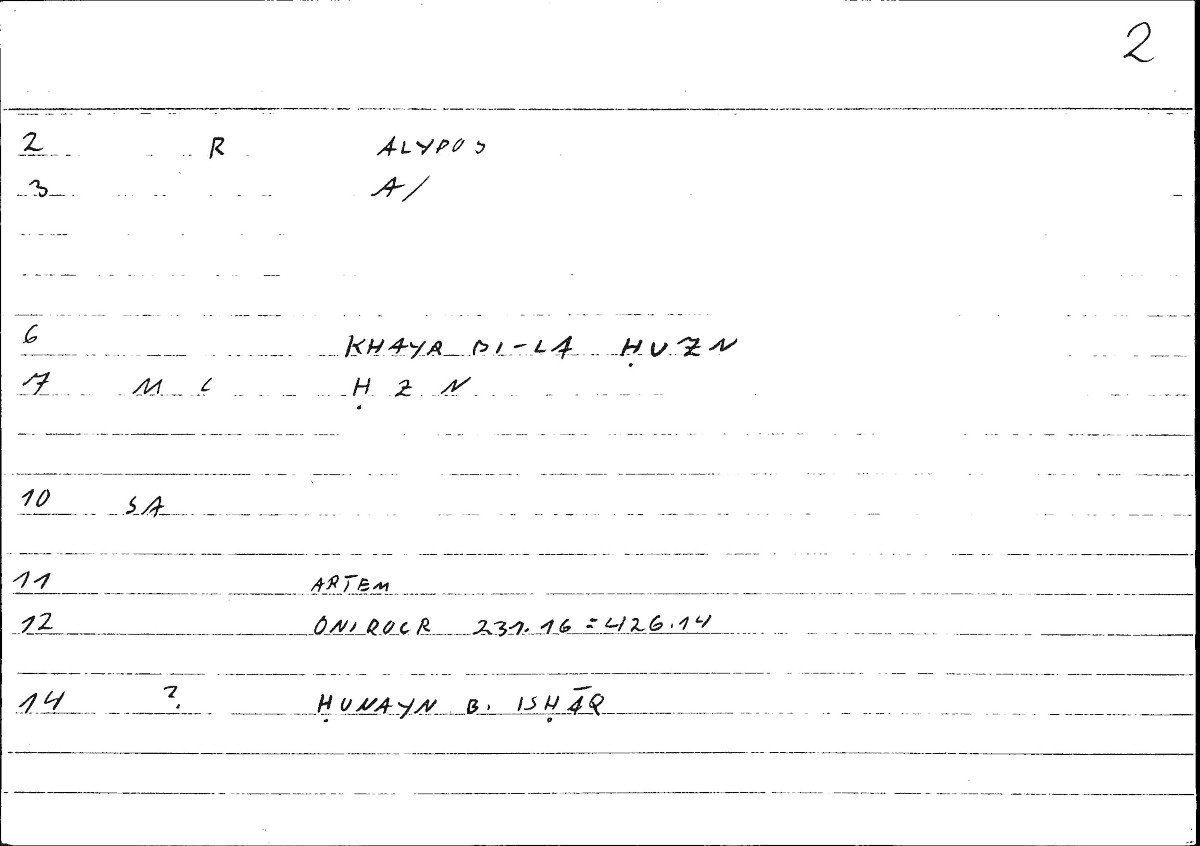 2
2 R ALYPOS
3 A/
6 KHAYR BI-LA ḤUZN
7 M C Ḥ Z N
10 SA
11 ARTEM
12 ONIROCR 231.16 = 426.14
14 ? ḤUNAYN B. ISḤĀQ